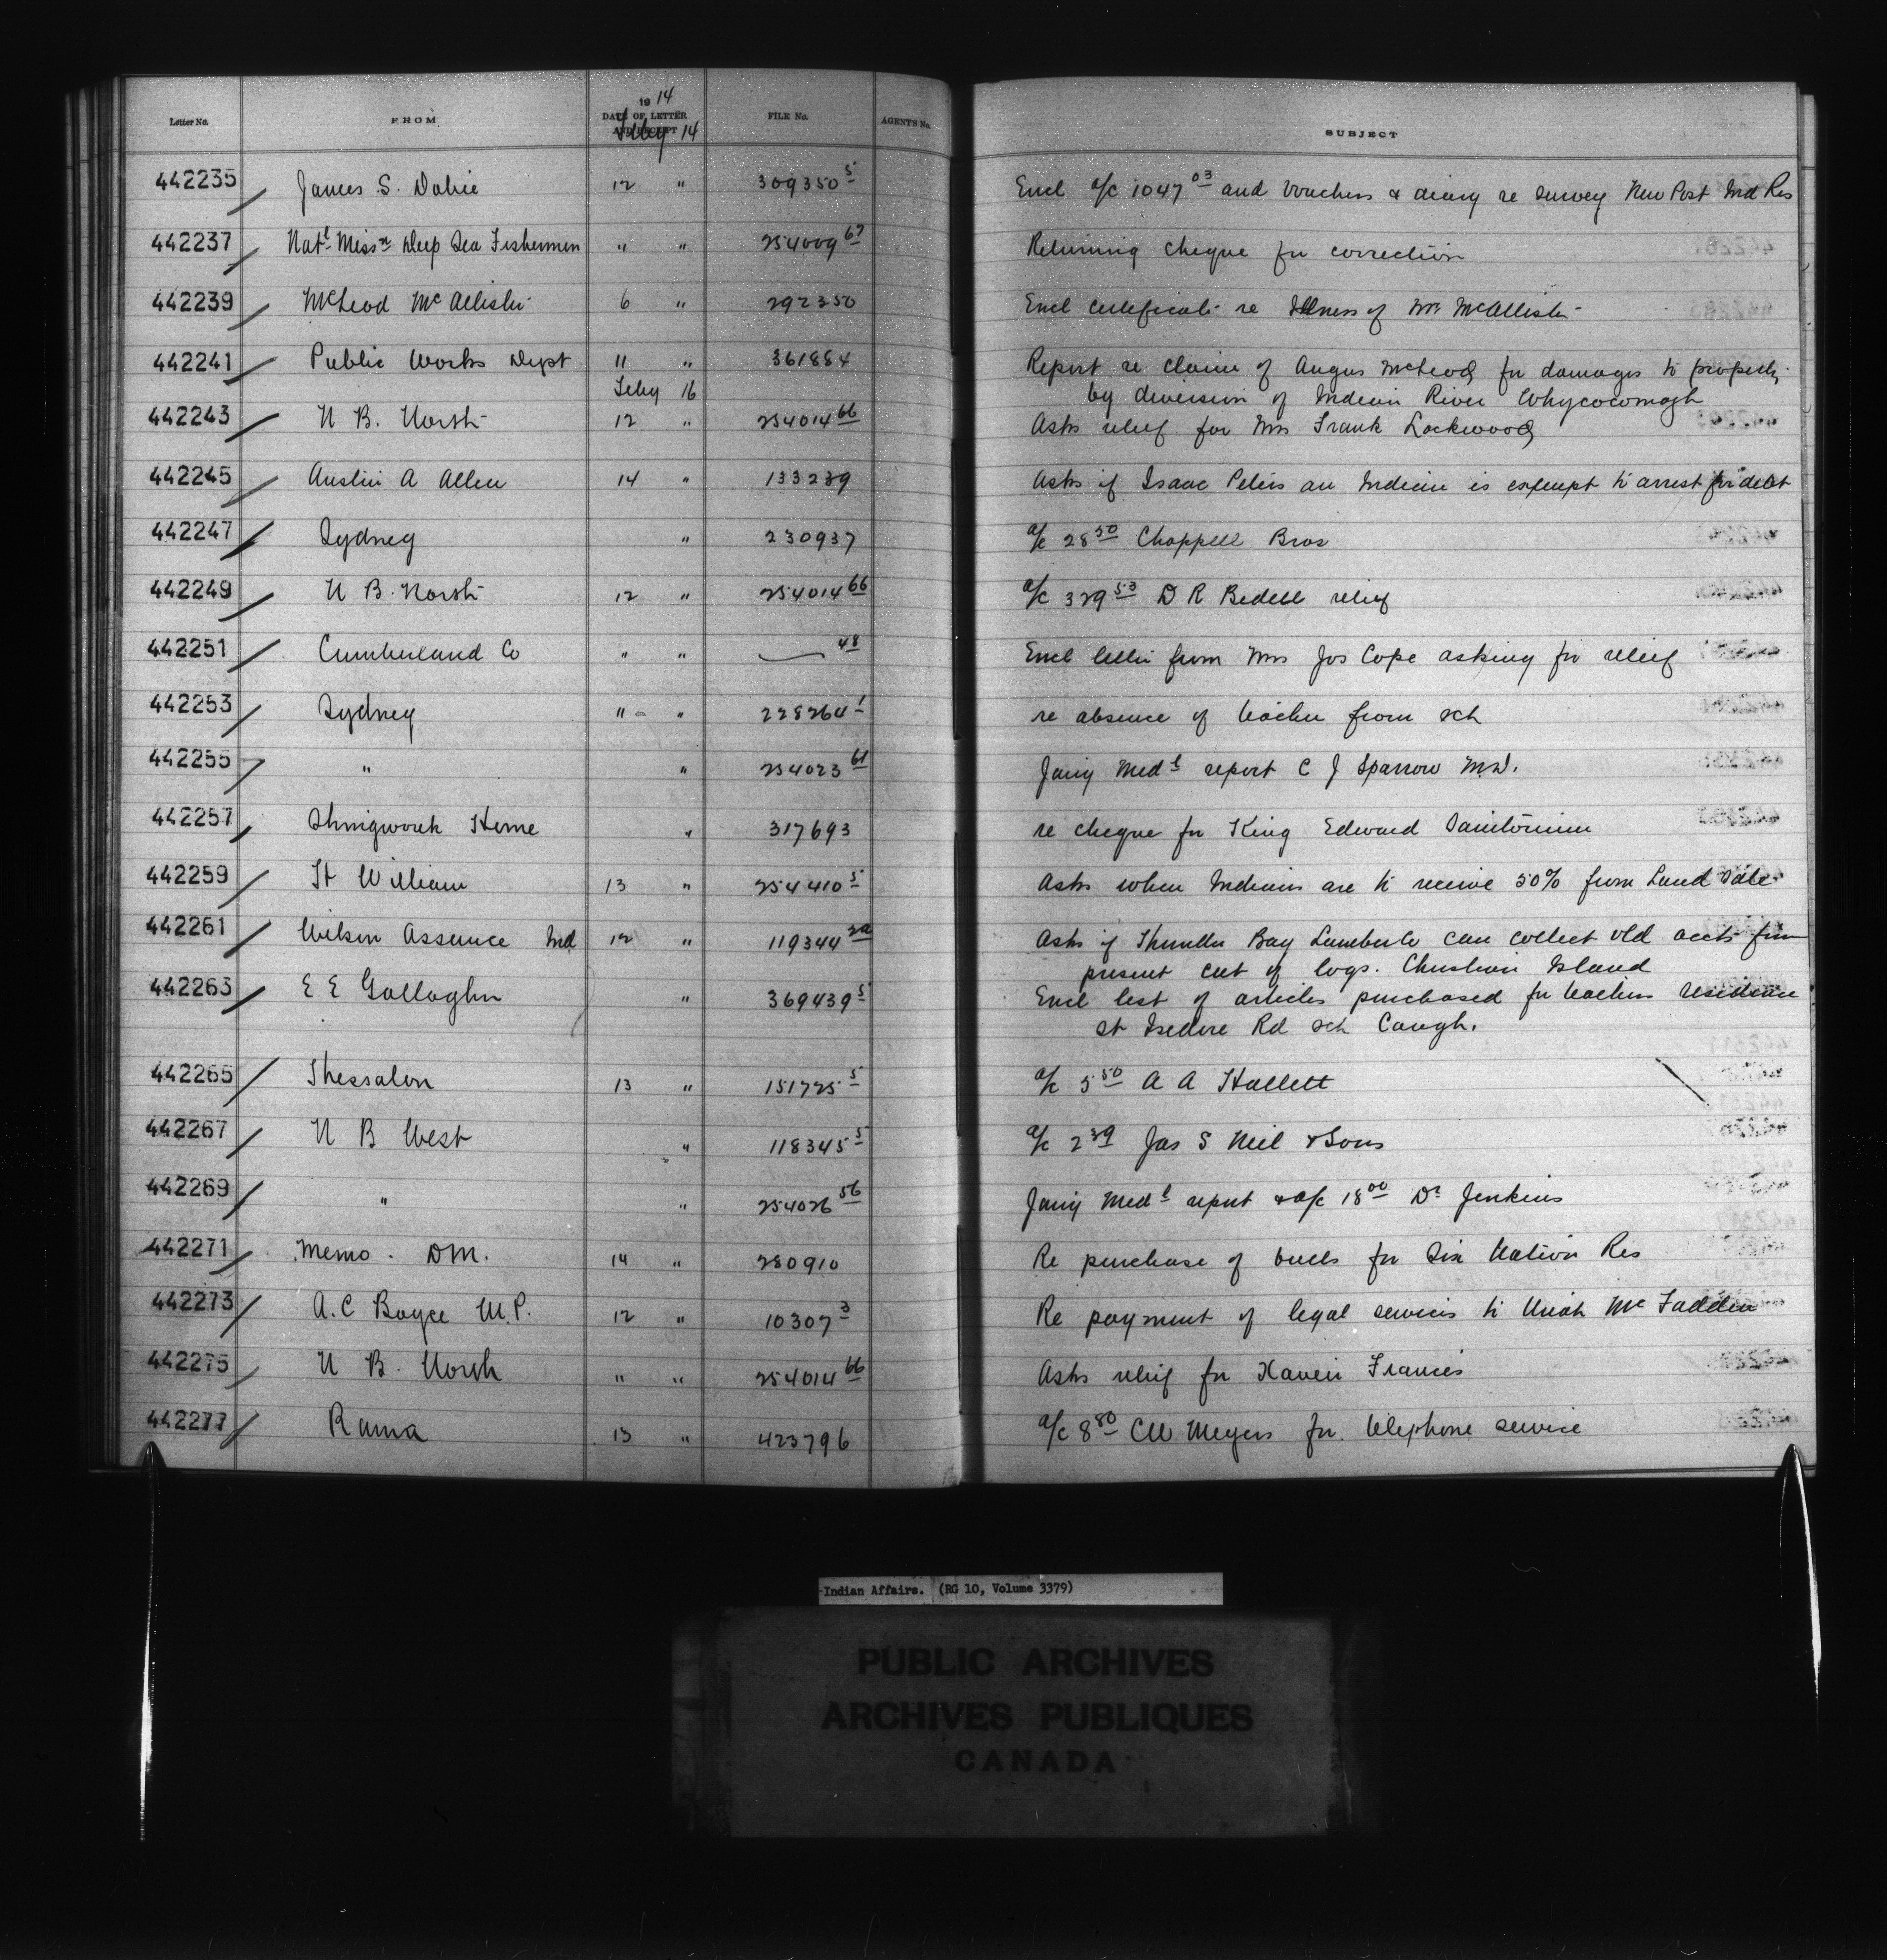 Letter No. FROM 1914 DATE OF LETTER AND RECEIPT FILE No. AGENT'S No. SUBJECT
Feby 14
442235 James S. Dobie 12 " 309350 5 Encl a/c 1047 03 and Vouchers & diary re survey New Post Ind Res
442237 Natl Missn Deep Sea Fishermen " " 254009 67 Returning cheque for correction
442239 McLeod McAllister 6 " 292350 Encl certificate re Illness of Mr McAllister
442241 Public Works Dept 11 " 361884 Report re claim of Angus McLeod for damages to property
by diversion of Indian River Whycocomagh
Feby 16
442243 N B. North 12 " 254014 66 Asks relief for Mrs Frank Lockwood
442245 Austin A Allen 14 " 133239 Asks if Isaac Peters an Indian is exempt to arrest for debt
442247 Sydney " 230937 a/c 28 50 Chappell Bros
442249 N B. North 12 " 254014 66 a/c 329 53 D R Bedell relief
442251 Cumberland Co " " 48 Encl letter from Mrs Jos Cope asking for relief
442253 Sydney " " 228264 1 re absence of teacher from sch
442255 " " 254023 61 Jany Medl report C J Sparrow M.D.
442257 Shingwauk Home " 317693 re cheque for King Edward Sanitorium
442259 Ft William 13 " 254410 5 Asks when Indians are to receive 50% from Land Sale
442261 Wilson Assance Ind 12 " 119344 2a Asks if Thunder Bay Lumber Co can collect old accts from
present cut of logs. Christian Island
442263 E E Gallagher " 369439 5 Encl list of articles purchased for teachers residence
St Isedore Rd sch Caugh.
442265 Thessalon 13 " 151725 5 a/c 5 50 A A Hallett
442267 N B West " 118345 5 a/c 2 39 Jas S Neil & Sons
442269 " " 254026 56 Jany Medl report & a/c 18 00 Dr Jenkins
442271 Memo - DM. 14 " 280910 Re purchase of bulls for Six Nation Res
442273 A. C Boyce M.P. 12 " 10307 3 Re payment of legal services to Uriah McFadden
442275 N B. North " " 254014 66 Asks relief for Xavier Francis
442277 Rama 13 " 423796 a/c 8 80 CW Meyers for telephone service
Indian Affairs. (RG 10, Volume 3379)
PUBLIC ARCHIVES
ARCHIVES PUBLIQUES
CANADA